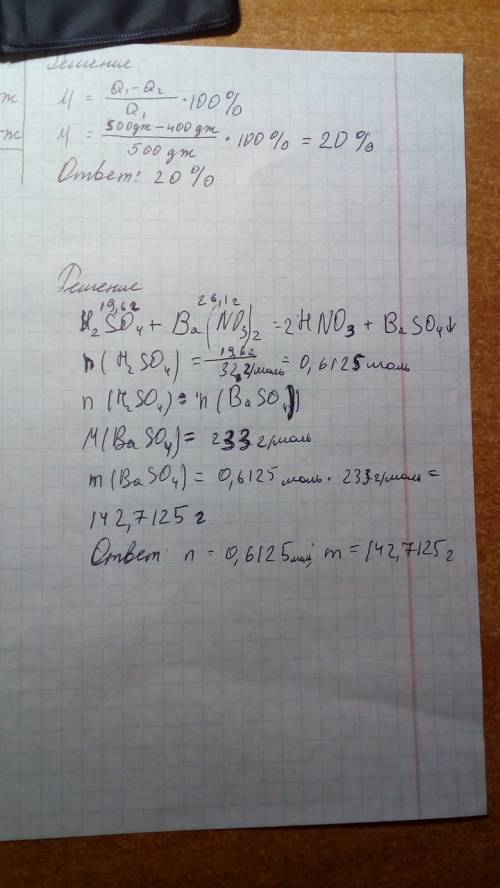 Решение
ж
M = Q₁-Q₂ / Q₁ · 100%
ж
M = 500дж-400дж / 500дж · 100% = 20%
Ответ: 20%
Решение
19,6г 26,1г
H₂SO₄ + Ba(NO₃)₂ = 2HNO₃ + BaSO₄↓
n(H₂SO₄) = 19,6г / 32г/моль = 0,6125 моль
n(H₂SO₄) = n(BaSO₄)
M(BaSO₄) = 233 г/моль
m(BaSO₄) = 0,6125 моль · 233г/моль =
142,7125 г
Ответ: n = 0,6125 моль; m = 142,7125 г